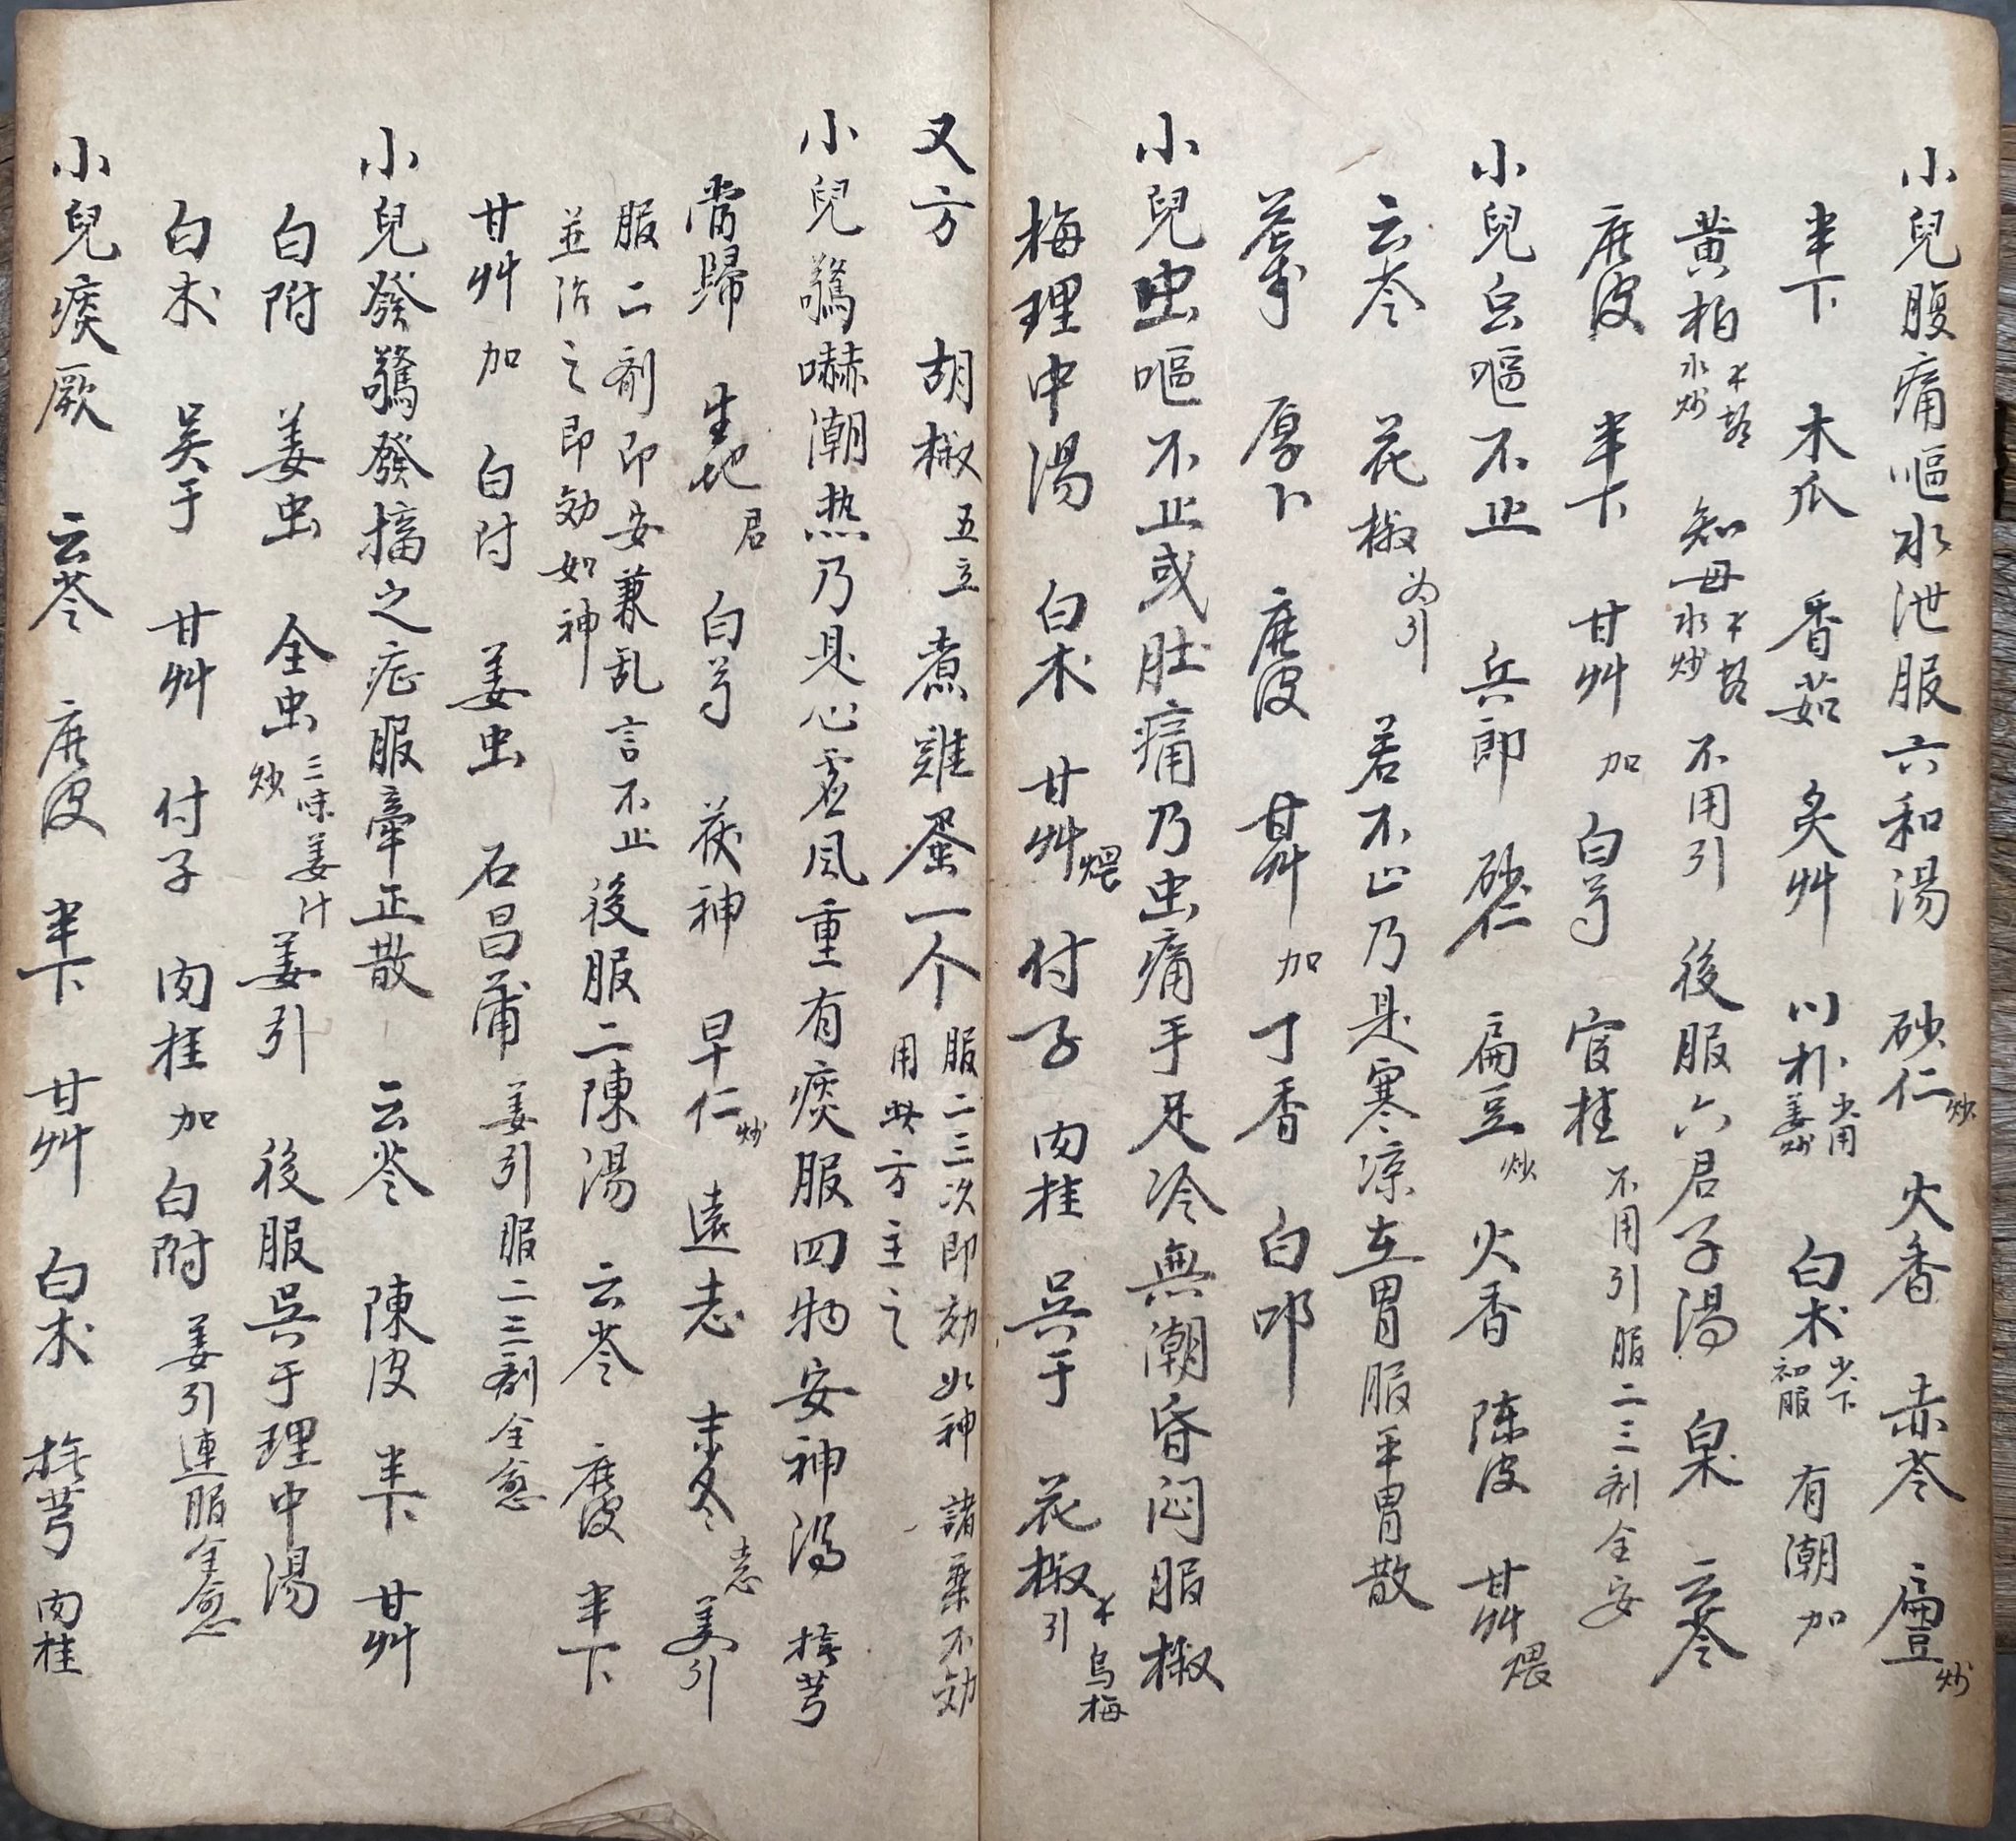 小兒腹痛嘔水泄服六和湯 砂仁炒 火香 赤苓 扁豆炒
半下 木瓜 香茹 炙艸 川朴少用姜炒 白术少下初服 有潮加
黃柏水炒 知母水炒 不用引 後服六君子湯 云苓
庶皮 半下 甘艸 加 白芍 官桂 不用引服二三剤全安
小兒嘔不止 兵郎 砂仁 扁豆炒 火香 陈皮 甘艸煨
云苓 花椒为引 若不止乃是寒凉在胃服平胃散
厚卜 庶皮 甘艸 加 丁香 白叩
小兒虫嘔不止或肚痛乃虫痛手足冷無潮昏闷服椒
梅理中湯 白术 甘艸煨 付子 肉桂 吳于 花椒 烏梅引
又方 胡椒五立 煮雞蛋一个 服二三次即効如神 諸藥不効用此方主之
小兒驚嚇潮热乃是心虚風重有痰服四物安神湯 撫芎
當歸 生地君 白芍 茯神 早仁炒 遠志 麦冬 姜引
服二剤即安兼乱言不止後服二陳湯 云苓 庶皮 半下
並治之即効如神
甘艸 加 白附 姜虫 石昌蒲 姜引服二三剤全愈
小兒發驚發搐之症服牽正散 云苓 陳皮 半下 甘艸
白附 姜虫 全虫 三味姜汁炒 姜引 後服吳于理中湯
白术 吴于 甘艸 付子 肉桂 加 白附 姜引連服全愈
小兒痰厥 云苓 庶皮 半下 甘艸 白术 撫芎 肉桂